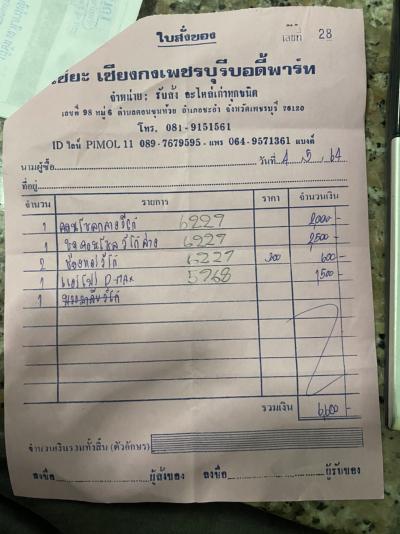 ใบสั่งของ
เลขที่ 28
เชียงกงเพชรบุรีบอดี้พาร์ท
จำหน่าย; รับสั่ง อะไหล่เก่าทุกชนิด
เลขที่ 98 หมู่ 6 ตำบลดอนขุนห้วย อำเภอชะอำ จังหวัดเพชรบุรี 76120
โทร. 081-9151561
ID ไลน์ PIMOL 11 089-7679595 - แพร 064-9571361 แบงค์
นามผู้ซื้อ
วันที่ 4 5 64
ที่อยู่
จำนวน รายการ ราคา จำนวนเงิน
1 คอนโซลกลางวีโก้ 6227 2000 -
1 วีโก้ล่าง 6227 2,500 -
2 วีโก้ 6227 300 600 -
1 D-MAX 5768 1,500 -
1 วีโก้
รวมเงิน 6,600 -
จำนวนเงินรวมทั้งสิ้น (ตัวอักษร)
ลงชื่อ ผู้ส่งของ ลงชื่อ ผู้รับของ